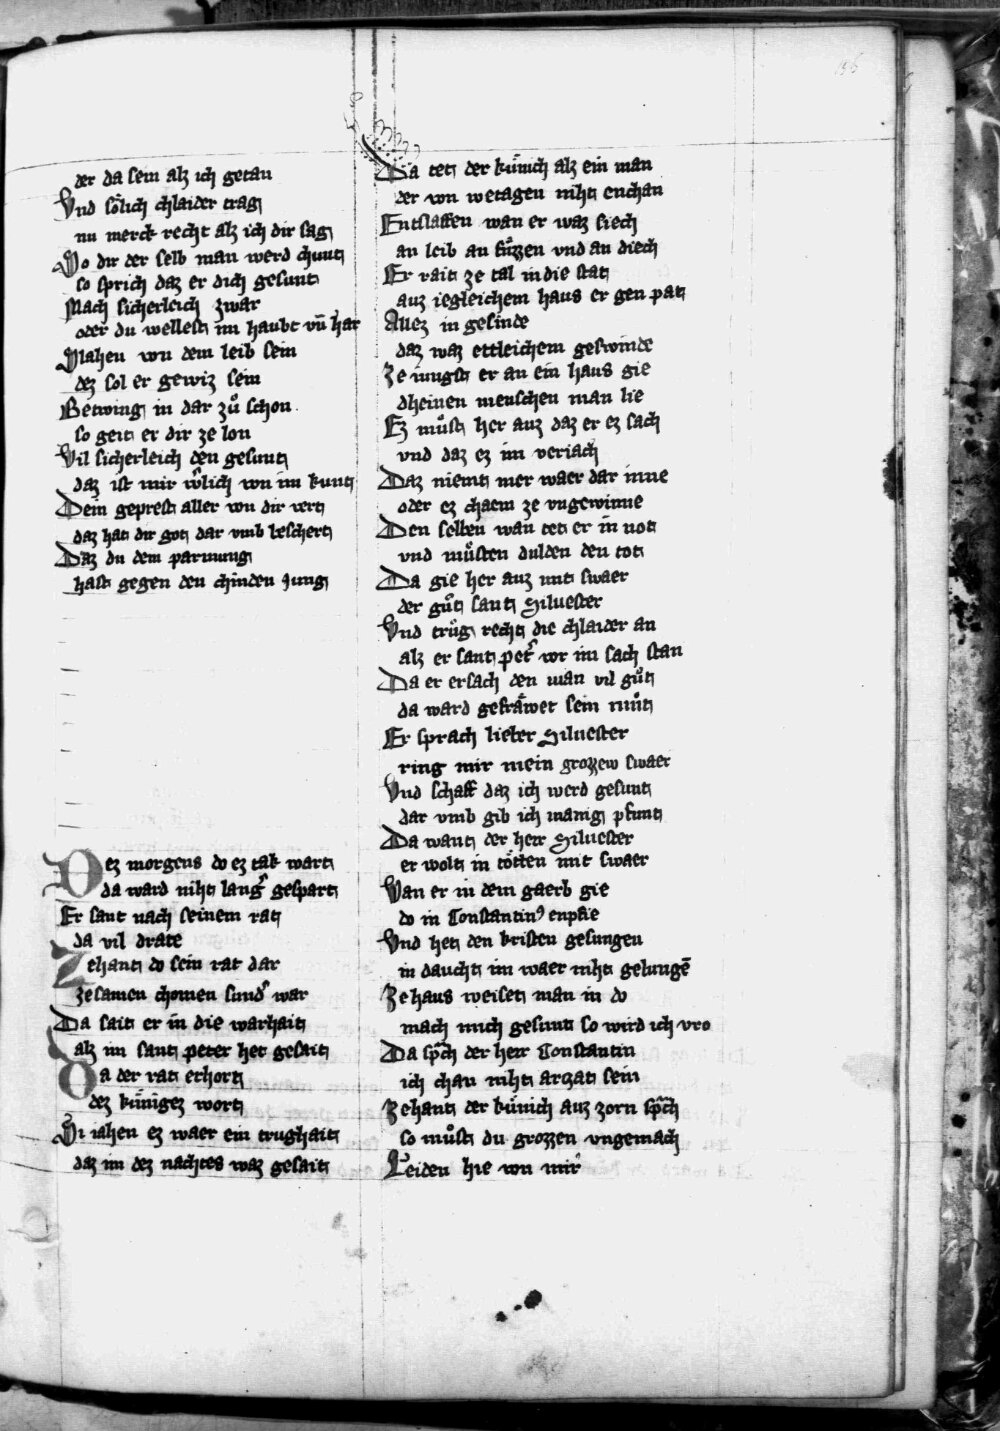 156
der da sein alz ich getan
Vnd soͤlich chlaider trag
nu merck recht alz ich dir sag
So dir der selb man werd chunt
so sprich daz er dich gesunt
Mach sicherleich zwar
oder du wellest im haubt vn̄ har
Slahen von dem leib sein
dez sol er gewiz sein
Betwing in dar zuͦ schon
so geit er dir ze lon
Vil sicherleich den gesunt
daz ist mir von im kunt
Dein geprest aller von dir vert
daz hat dir got dar vmb beschert
Daz du dem parmung
hast gegen den chinden Jung
Dez morgens do ez tak wart
da ward niht lang gespart
Er sant nach seinem rat
da vil drate
Zehant do sein rat dar
zesamen chomen sunder war
Da sait er in die warhait
alz im sant peter het gesait
Da der rat erhort
dez kuͤnigez wort
Si iahen ez waer ein trughait
daz im dez nachtes waz gesait
Da tet der kuͤnich alz ein man
der von wetagen niht enchan
Entslaffen wan er waz siech
an leib an fuͤzzen vnd an diech
Er rait ze tal in die stat
auz iegleichem haus er gen pat
Allez in gesinde
daz waz ettleichem geswinde
Ze iungst er an ein haus gie
dheinen menschen man lie
Ez muͦst her auz daz er ez sach
vnd daz ez im veriach
Daz niemt mer waer dar inne
oder ez chaem ze vngewinne
Den selben wan tet er in not
vnd muͦsten dulden den tot
Da gie her auz mit swaer
der guͦt sant Siluester
Vnd truͦg recht die chlaider an
alz er sant pet' vor im sach stan
Da er ersach den man vil guͦt
da ward gefraͤwet sein muͦt
Er sprach lieber Siluester
ring mir mein grozzew swaer
Vnd schaff daz ich werd gesunt
dar vmb gib ich manig pfunt
Da want der herr Siluester
er wolt in toͤten mit swaer
Wan er in dem gaerb gie
do in Constantin9 enpfie
Vnd het den kristen gesungen
in daucht im waer niht gelungē
Ze haus weiset man in do
mach mich gesunt so wird ich vro
Da sp̄ch der herr Constantin
ich chan niht arzat sein
Zehant der kuͤnich auz zorn sp̄ch
so muͦst du grozzen vngemach
Leiden hie von mir